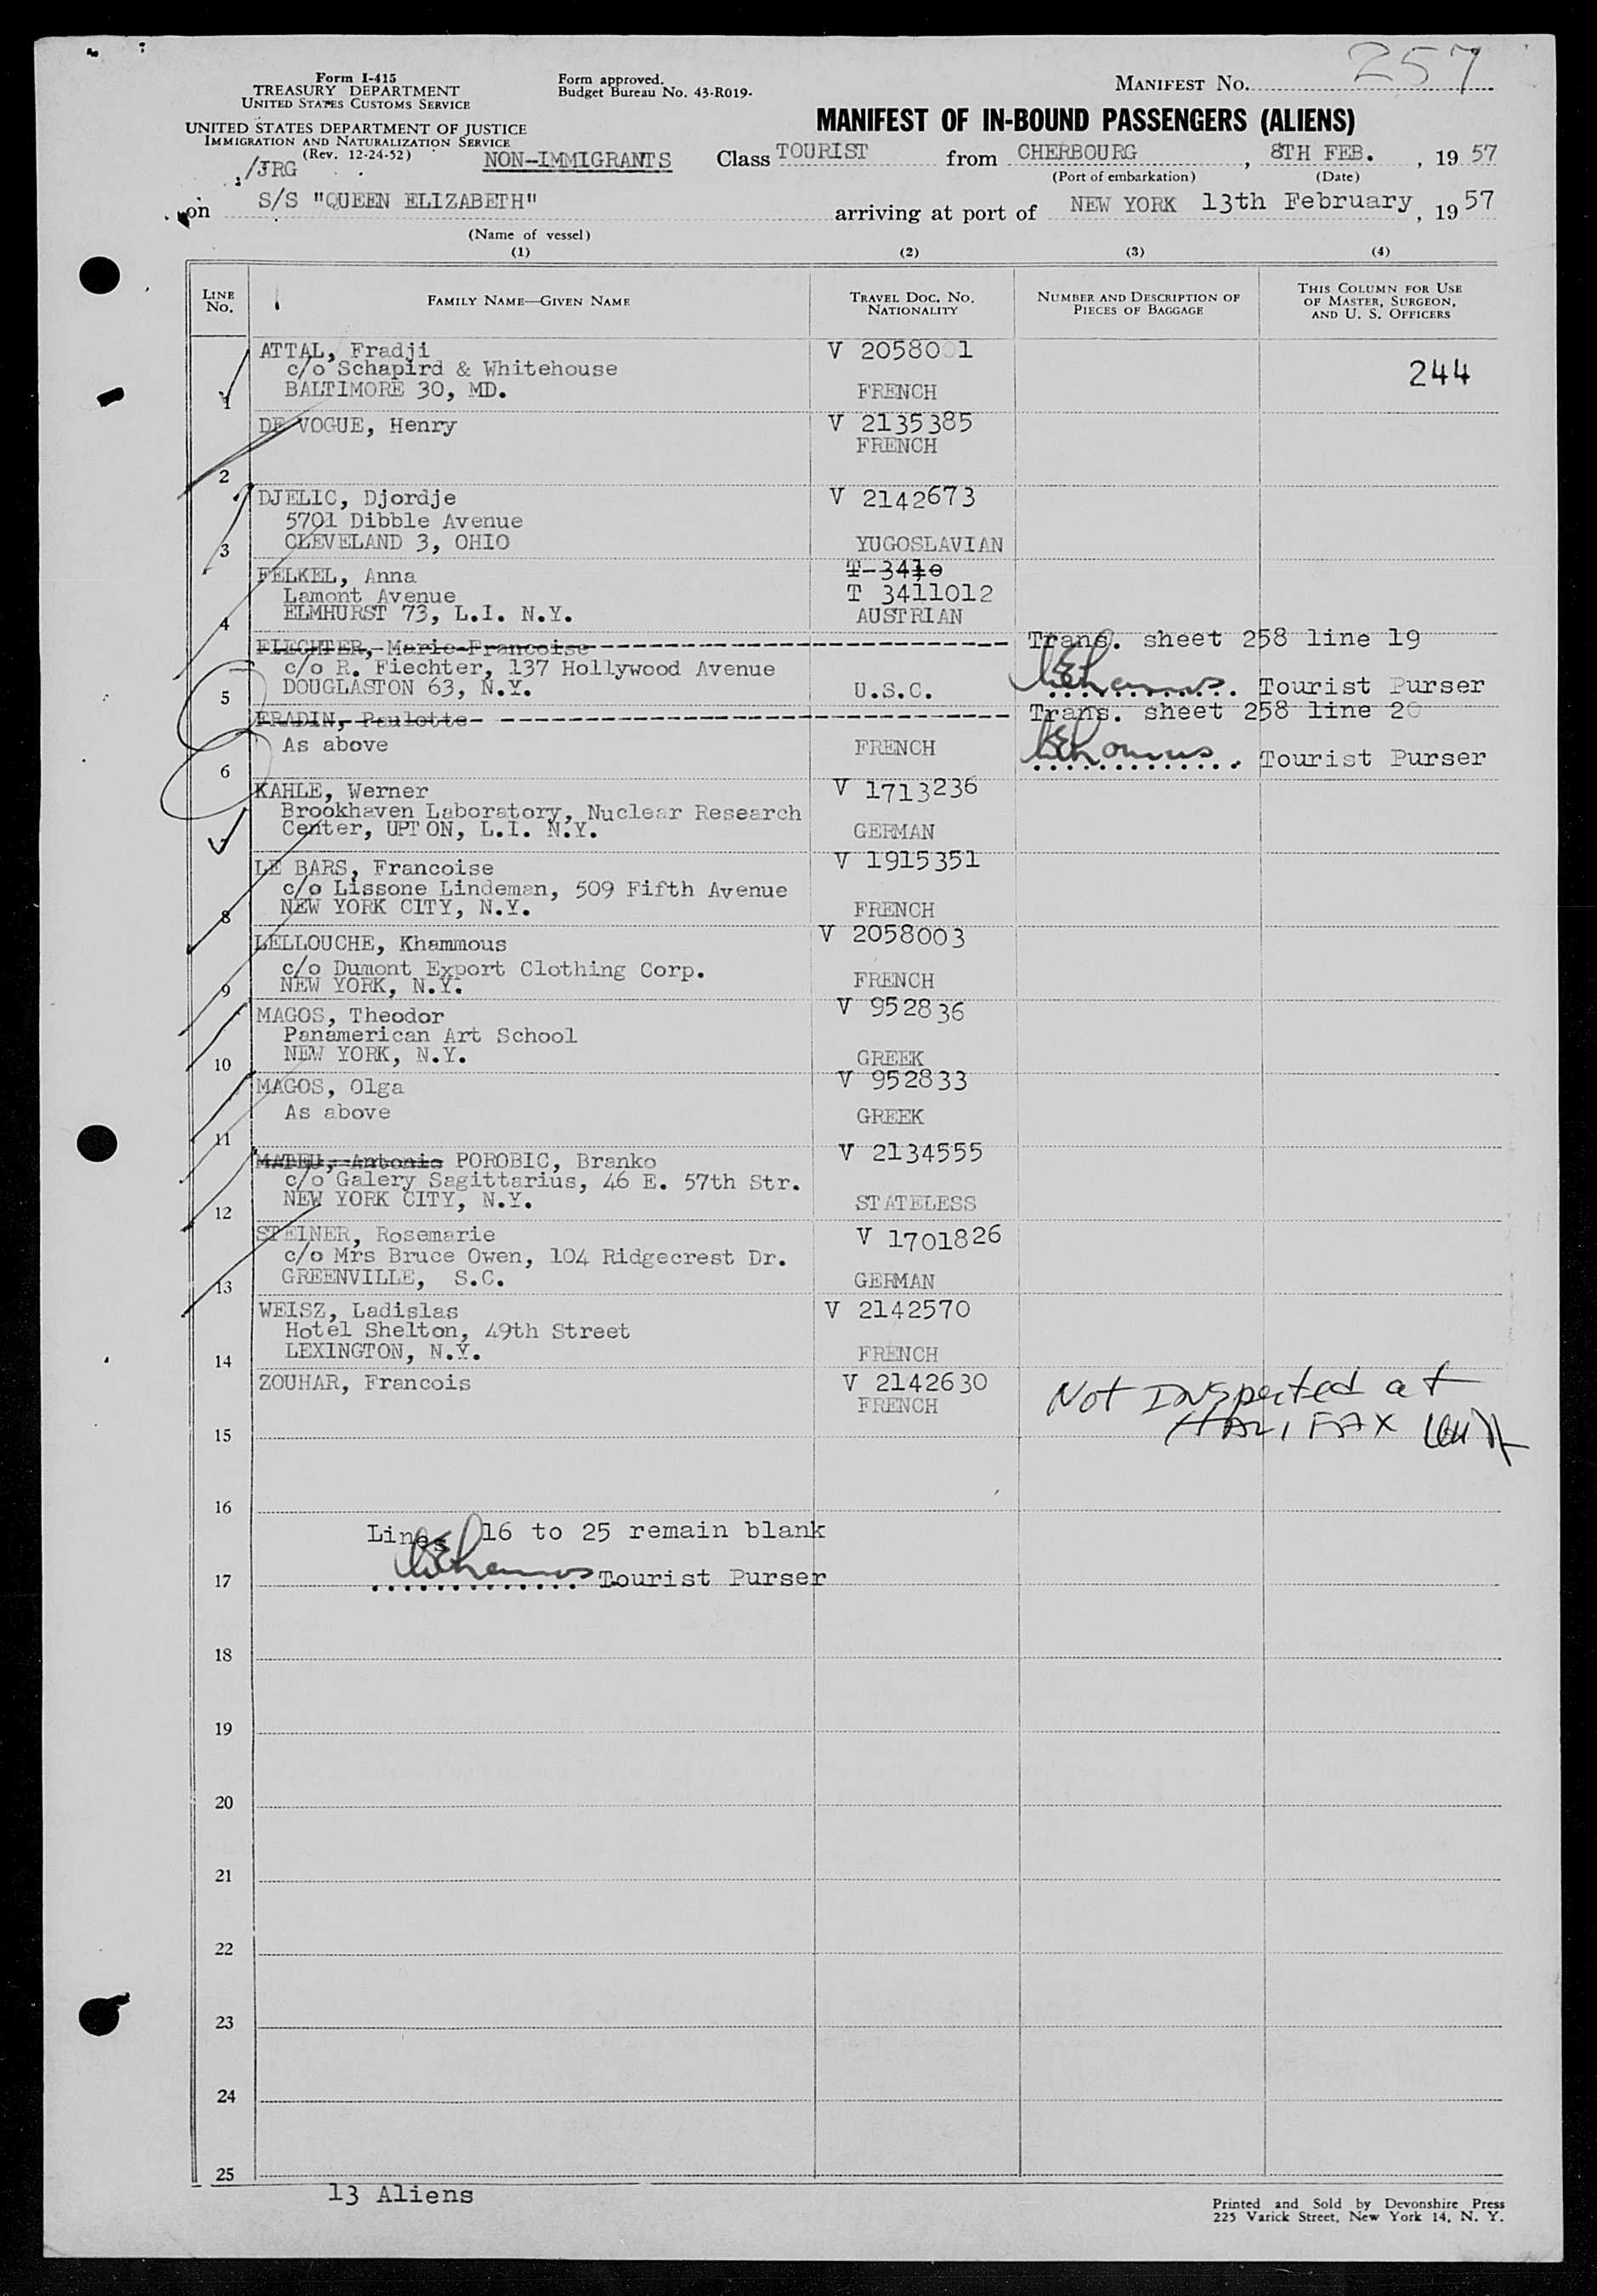 257
Form I-415
TREASURY DEPARTMENT
UNITED STATES CUSTOMS SERVICE
Form approved.
Budget Bureau No. 43-R019-
MANIFEST No.
UNITED STATES DEPARTMENT OF JUSTICE
IMMIGRATION AND NATURALIZATION SERVICE
(Rev. 12-24-52)
MANIFEST OF IN-BOUND PASSENGERS (ALIENS)
/JRG NON-IMMIGRANTS Class TOURIST from CHERBOURG, 8TH FEB., 19 57
(Port of embarkation) (Date)
on S/S "QUEEN ELIZABETH" arriving at port of NEW YORK 13th February, 19 57
(Name of vessel)
(1) (2) (3) (4)
LINE No. FAMILY NAME—GIVEN NAME TRAVEL DOC. NO. NATIONALITY NUMBER AND DESCRIPTION OF PIECES OF BAGGAGE THIS COLUMN FOR USE OF MASTER, SURGEON, AND U. S. OFFICERS
ATTAL, Fradji V 2058001
c/o Schapird & Whitehouse 244
1 BALTIMORE 30, MD. FRENCH
DE VOGUE, Henry V 2135385
FRENCH
2
DJELIC, Djordje V 2142673
5701 Dibble Avenue
3 CLEVELAND 3, OHIO YUGOSLAVIAN
T-3410
FELKEL, Anna
Lamont Avenue T 3411012
4 ELMHURST 73, L.I. N.Y. AUSTRIAN
FIECHTER, Marie-Francoise Trans. sheet 258 line 19
c/o R. Fiechter, 137 Hollywood Avenue
5 DOUGLASTON 63, N.Y. U.S.C. Tourist Purser
FRADIN, Paulotte Trans. sheet 258 line 20
As above FRENCH Tourist Purser
6
KAHLE, Werner V 1713236
Brookhaven Laboratory, Nuclear Research
Center, UPTON, L.I. N.Y. GERMAN
LE BARS, Francoise V 1915351
c/o Lissone Lindeman, 509 Fifth Avenue
8 NEW YORK CITY, N.Y. FRENCH
LELLOUCHE, Khammous V 2058003
c/o Dumont Export Clothing Corp. FRENCH
9 NEW YORK, N.Y.
MAGOS, Theodor V 952836
Panamerican Art School
10 NEW YORK, N.Y. GREEK
MAGOS, Olga V 952833
As above GREEK
11
MATEU, Antonio POROBIC, Branko V 2134555
c/o Galery Sagittarius, 46 E. 57th Str.
12 NEW YORK CITY, N.Y. STATELESS
STEINER, Rosemarie V 1701826
c/o Mrs Bruce Owen, 104 Ridgecrest Dr.
13 GREENVILLE, S.C. GERMAN
WEISZ, Ladislas V 2142570
Hotel Shelton, 49th Street
14 LEXINGTON, N.Y. FRENCH
ZOUHAR, Francois V 2142630 Not Inspected at
FRENCH HALIFAX
15
16
Lines 16 to 25 remain blank
17 Tourist Purser
18
19
20
21
22
23
24
25
13 Aliens
Printed and Sold by Devonshire Press
225 Varick Street, New York 14, N. Y.